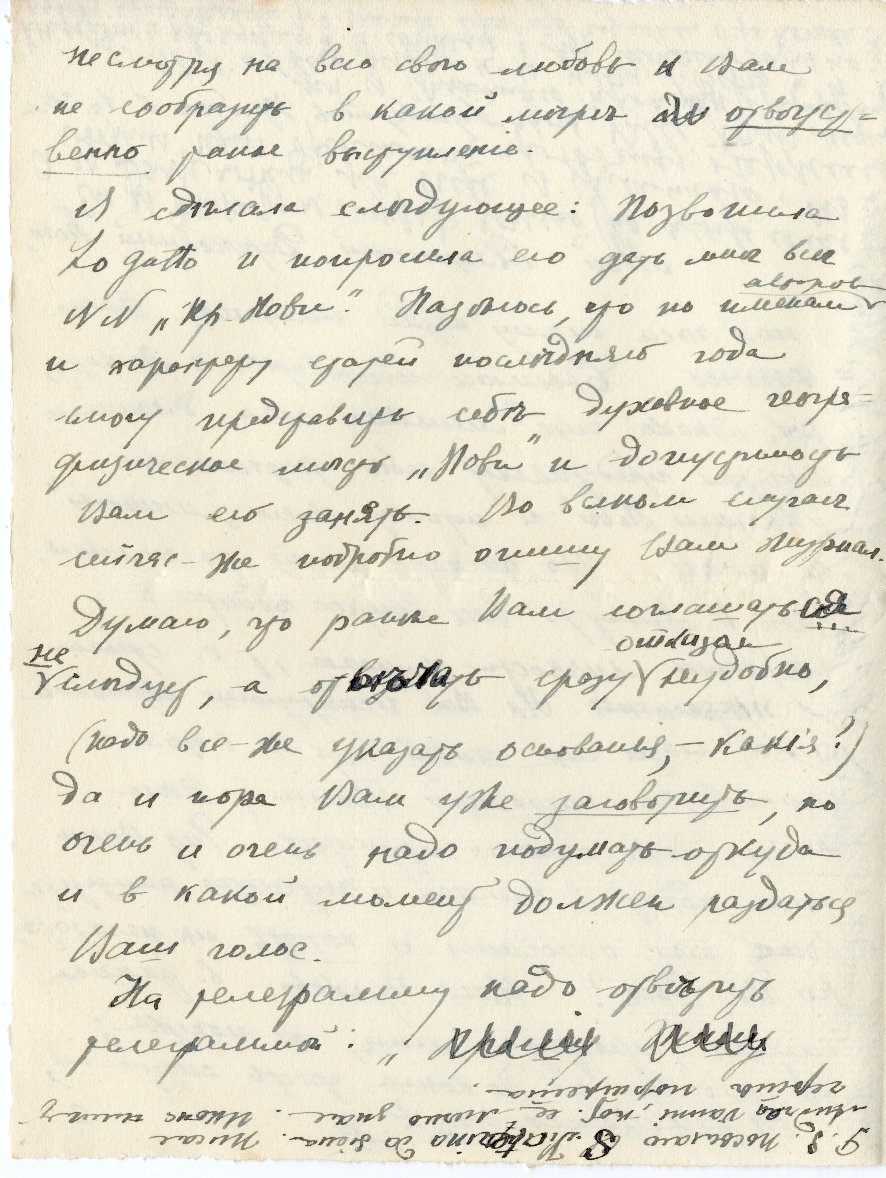 несмотря на всю свою любовь к Вам
не сообразить в какой мѣрѣ отвѣтст=
венно такое выступленіе.
Я сдѣлала слѣдующее: Позвонила
Lo Gatto и попросила его дать мнѣ все
NN „Кр. Нови". Надѣюсь, что по именам авторов
и характеру статей послѣдняго года
смогу представить себѣ духовное геогра-
фическое мѣсто „Нови" и допустимость
Вам его занять. Во всяком случаѣ
сейчас-же подробно опишу Вам журнал.
Думаю, что Вам соглашаться
не слѣдует, а отвѣчать сразу отказом неудобно,
(надо все-же указать основанья, – какія?)
да и пора Вам уже заговорить, но
очень и очень надо подумать откуда
и в какой момент должен раздаться
Ваш голос.
На телеграмму надо отвѣтить
телеграммой: „
P.S. Посылаю S. Caterina da Siena.
лично знал.
портрета.